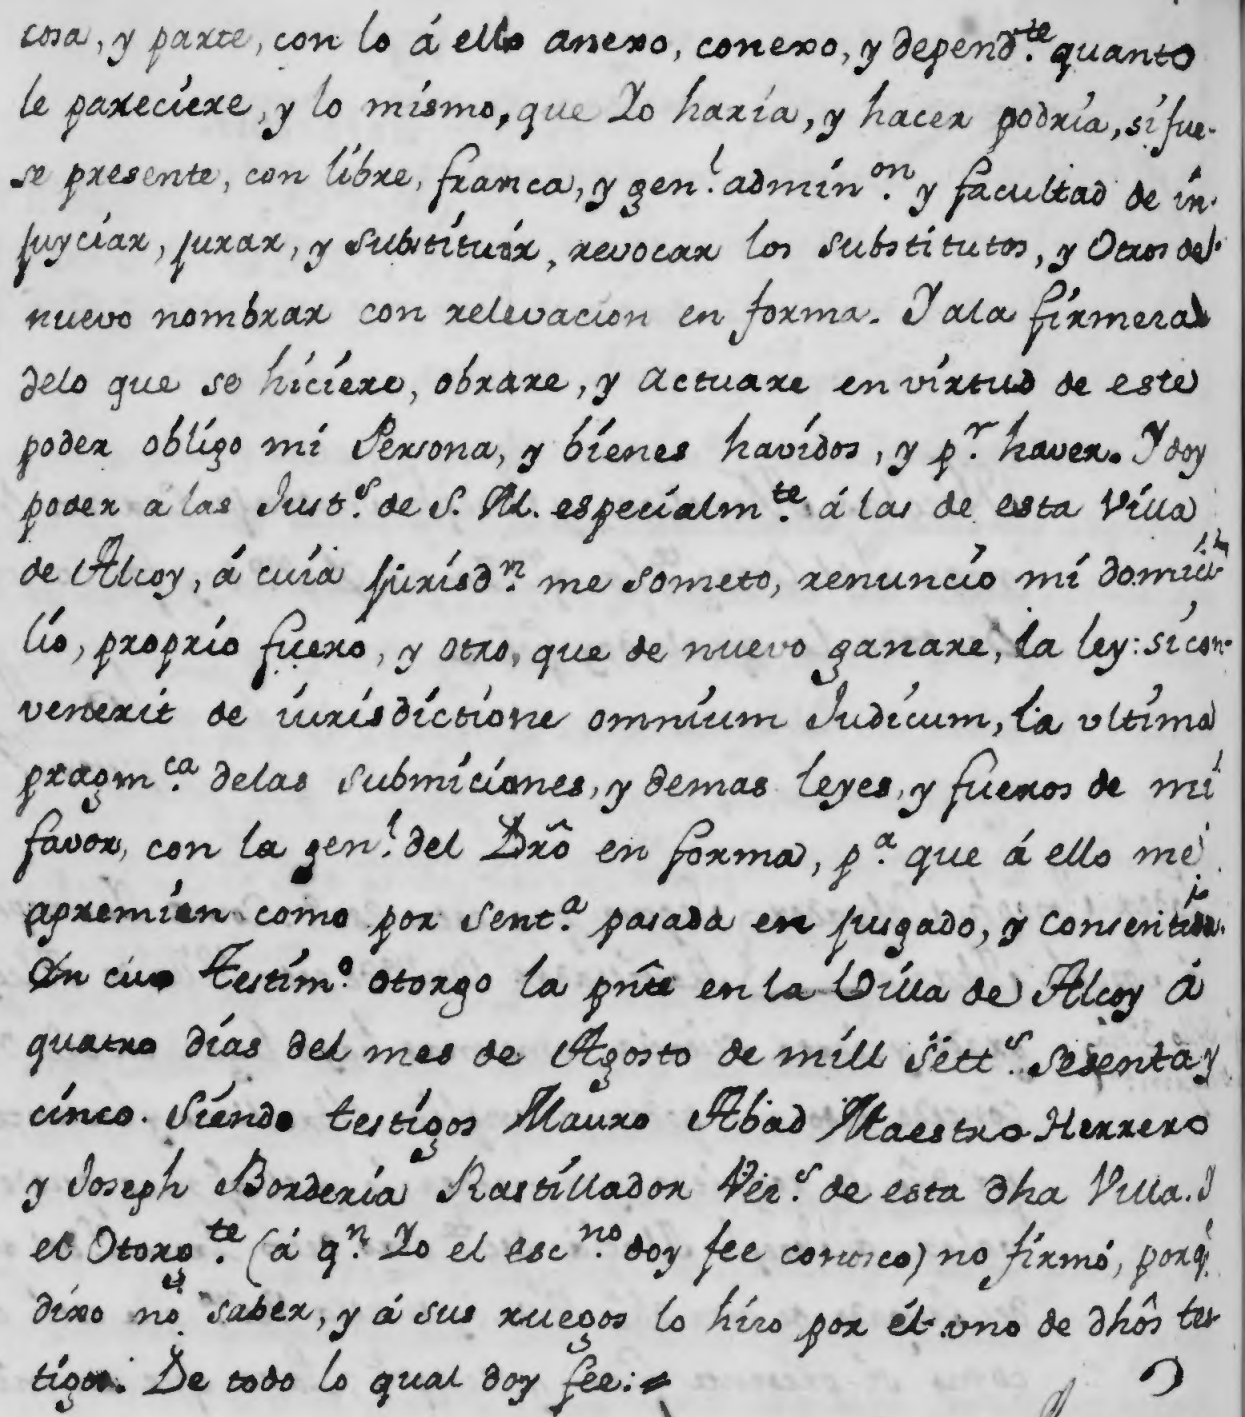 cosa, y parte, con lo á ello anexo, conexo, y depend.te quanto
le pareciere, y lo mismo, que Yo haria, y hacer podria, si fue-
se presente, con libre, franca, y gen.l admin.on y facultad de in-
juyciar, jurar, y substituir, revocar los substitutos, y Otros de
nuevo nombrar con relevacion en forma. Y ala firmeza
delo que se hiciere, obrare, y actuare en virtud de este
poder obligo mi Persona, y bienes havidos, y p.r haver. Y doy
poder a las Just.s de S. M. especialm.te á las de esta Villa
de Alcoy, á cuia jurisd.n me someto, renuncio mi domici-
lio, proprio fuero, y otro, que de nuevo ganare, la ley: si con-
venerit de iurisdictione omnium Judicum, la ultima
pragm.ca delas submiciones, y demas leyes, y fueros de mi
favor, con la gen.l del Drô en forma, p.a que á ello me
apremien como por sent.a pasada en jusgado, y consentida.
En cuio testim.o otorgo la pñte en la Villa de Alcoy á
quatro dias del mes de Agosto de mill sett.s sesenta y
cinco. Siendo testigos Mauro Abad Maestro Herrero
y Joseph Borderia Rastillador Vez.s de esta dha Villa. Y
el Otorg.te (á q.n Yo el esc.no doy fee conosco) no firmó, porq̃
dixo no saber, y á sus ruegos lo hizo por él uno de dhôs tes-
tigos. De todo lo qual doy fee:=